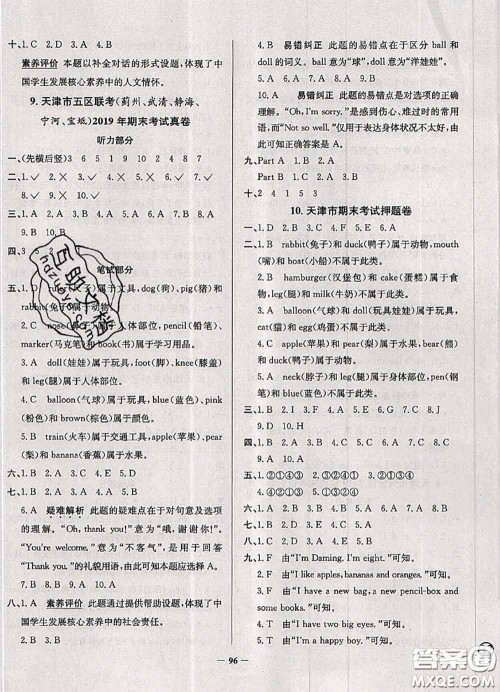 十、1. C  2. D  3. A  4. E  5. B
素养评价  本题以补全对话的形式设题,体现了中
国学生发展核心素养中的人文情怀。
9. 天津市五区联考(蓟州、武清、静海、
宁河、宝坻)2019 年期末考试真卷
听力部分
一、(先横后竖)  3  6  5  1  9  10  7  2  4  8
二、1. ✓  2. ×  3. ✓  4. ×  5. ✓  6. ✓  7. ×
三、1. B  2. B  3. A  4. B  5. A  6. A  7. B  8. A
9. B  10. A
四、3
笔试部分
五、1. D
和 rabbit(兔子)属于动物。
2. C
marker(马克笔)和 book(书)属于学习用品。
3. A  doll(娃娃)属于玩具, foot(脚)、knee(膝盖)
和 leg(腿)属于人体部位。
4. A  balloon(气球)属于玩具, blue(蓝色)、pink
(粉色)和 brown(棕色)属于颜色。
5. B  train(火车)属于交通工具, apple(苹果)、pear
(梨)和 banana(香蕉)属于水果。
六、1. B  2. A  3. C  4. E  5. D
七、1. B  2. B  3. A  4. A
5. A  疑难解析  此题的疑难点在于对句意及选项
的理解。“Oh, thank you!”意为“哦,谢谢你!”,
“You're welcome.”意为“不客气”,是用于回答
“Thank you.”的礼貌用语,由此可知本题应选择 A。
八、1. A  素养评价  此题通过提供帮助设题,体现了中
国学生发展核心素养中的社会责任。
2. B  3. B  4. A
4. B  易错纠正  此题的易错点在于区分 ball 和
doll 的词义。ball 意为“球”, doll 意为“洋娃娃”。
5. A  易错纠正  此题的易错点是对选项的正确
理解。“Oh, I'm sorry.”是感到伤心、难过时的常
用语,而“Not so well.”仅代表身体状况不太好,
由此可知正确答案是 A。
九、Part A  1. C  2. A  Part B  1. C  2. A
十、2  4  1  5  3
10. 天津市期末考试押题卷
一、1. B  rabbit(兔子)和 duck(鸭子)属于动物,
boat(小船)不属于此类。
2. B  hamburger(汉堡包)和 cake(蛋糕)属于食
物, milk(牛奶)不属于此类。
3. A  balloon(气球)和 doll(洋娃娃)属于玩具,
egg(鸡蛋)不属于此类。
4. A  apple(苹果)和 pear(梨)属于水果, bear(熊)
属于动物。
5. A  neck(脖子)和 leg(腿)属于身体部位, pen(钢
笔)不属于此类。
二、1. B  2. I  3. F  4. A  5. E  6. C  7. G  8. J
9. D  10. H
三、1. B  2. A  3. B  4. A  5. A  6. B  7. A  8. B
9. B  10. A
四、1. ②①④③  2. ③②④①  3. ③②④①
4. ③①④②  5. ②③①④
五、1. B  2. A  3. C  4. B  5. A
六、1. F  由“I'm Daming. I'm eight.”可知。
2. F  由“I like apples, bananas and oranges.”可知。
3. T  由“I have a new bag, a new pencil-box and
some books.”可知。
4. F  由“I have a teddy bear.”可知。
5. T  由“I'm a happy boy.”可知。
— 96 —
答案圈
MXQE.COM